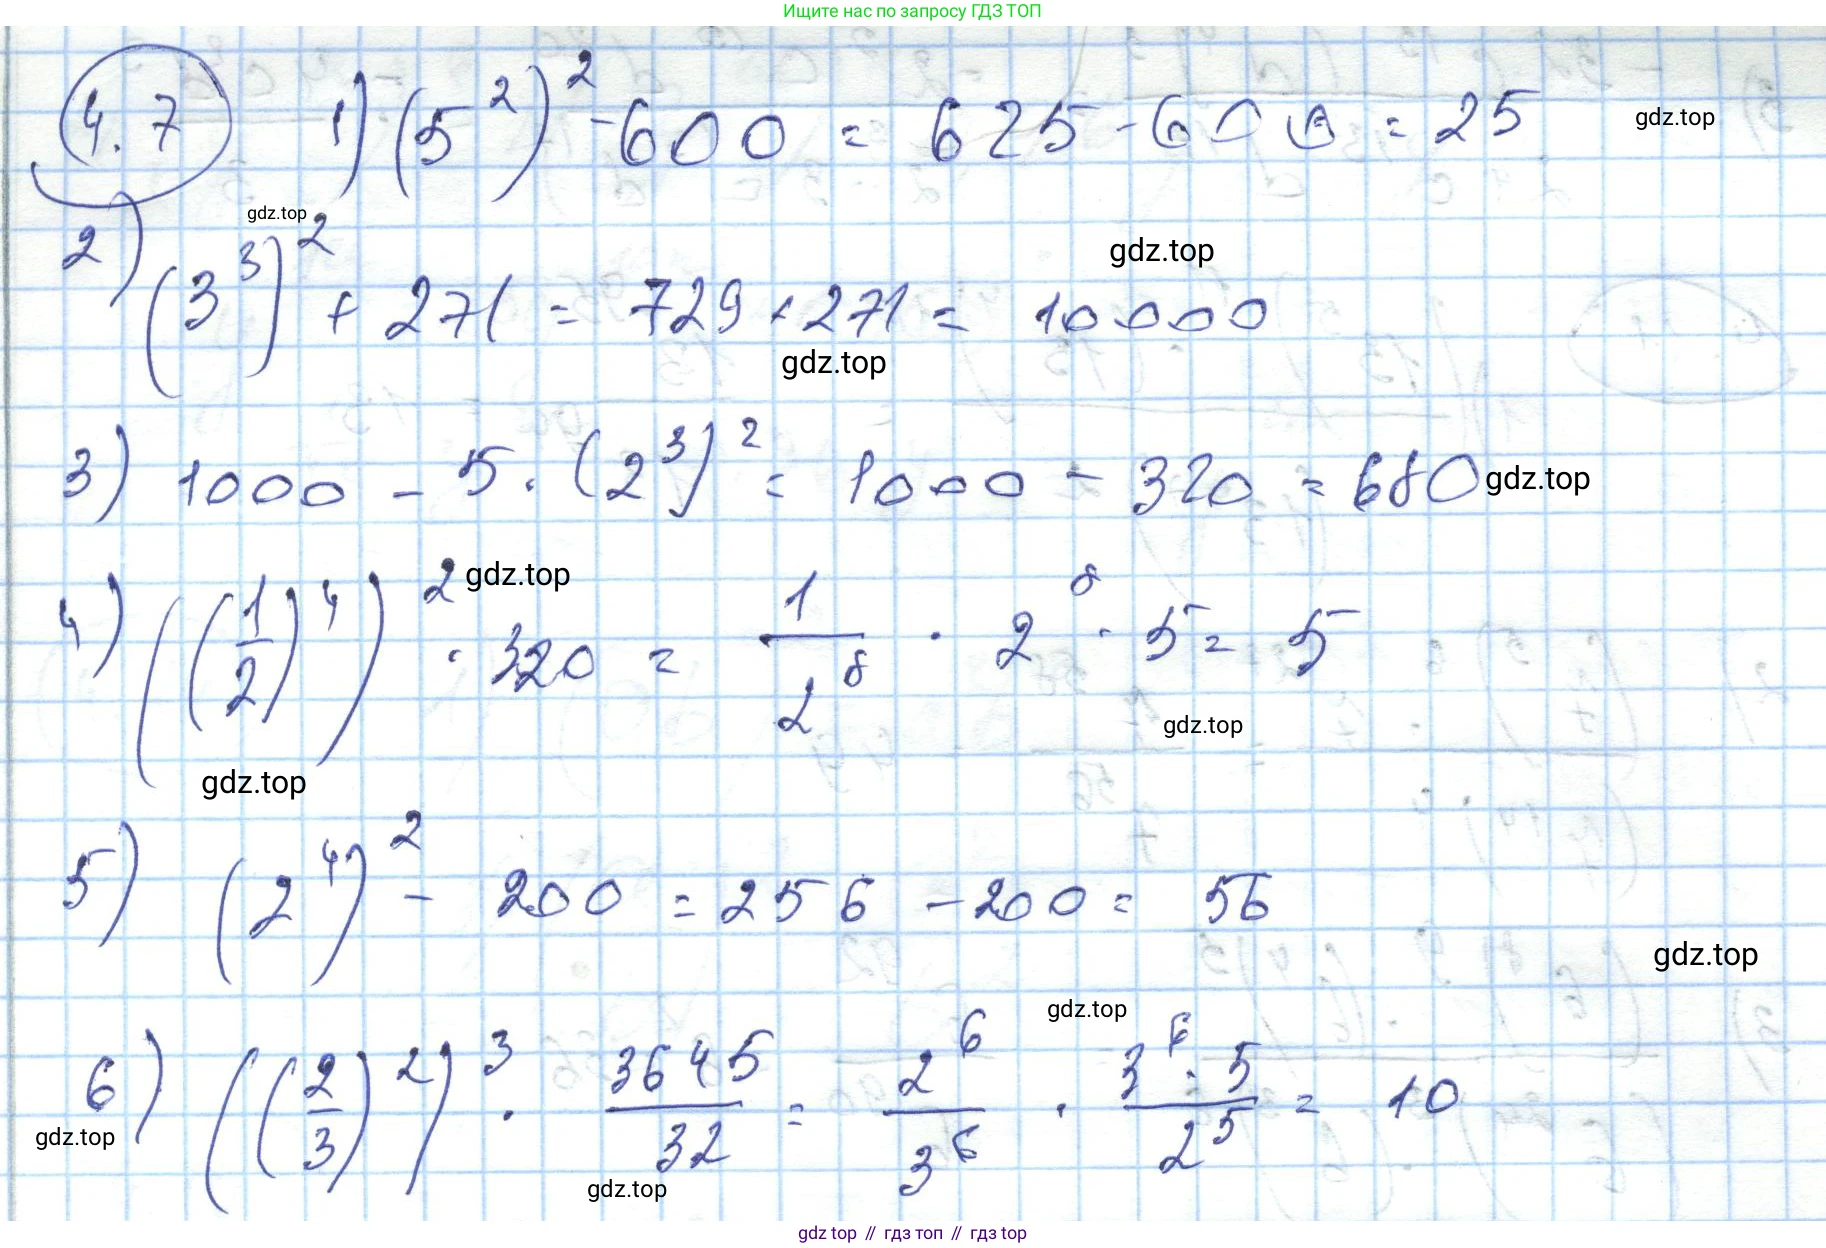 Ищите нас по запросу ГДЗ ТОП
4.7 1) (5²)² - 600 = 625 - 600 = 25
gdz.top
gdz.top
2) (3³)² + 271 = 729 + 271 = 10000
gdz.top
gdz.top
3) 1000 - 5 · (2³)² = 1000 - 320 = 680
gdz.top
4) ((1/2)⁴)² · 320 = 1/2⁸ · 2⁸ · 5 = 5
gdz.top
gdz.top
gdz.top
5) (2⁴)² - 200 = 256 - 200 = 56
gdz.top
gdz.top
6) ((2/3)²)³ · 3645/32 = 2⁶/3⁶ · 3⁶·5/2⁵ = 10
gdz.top
gdz.top
gdz top // гдз топ // gdz top